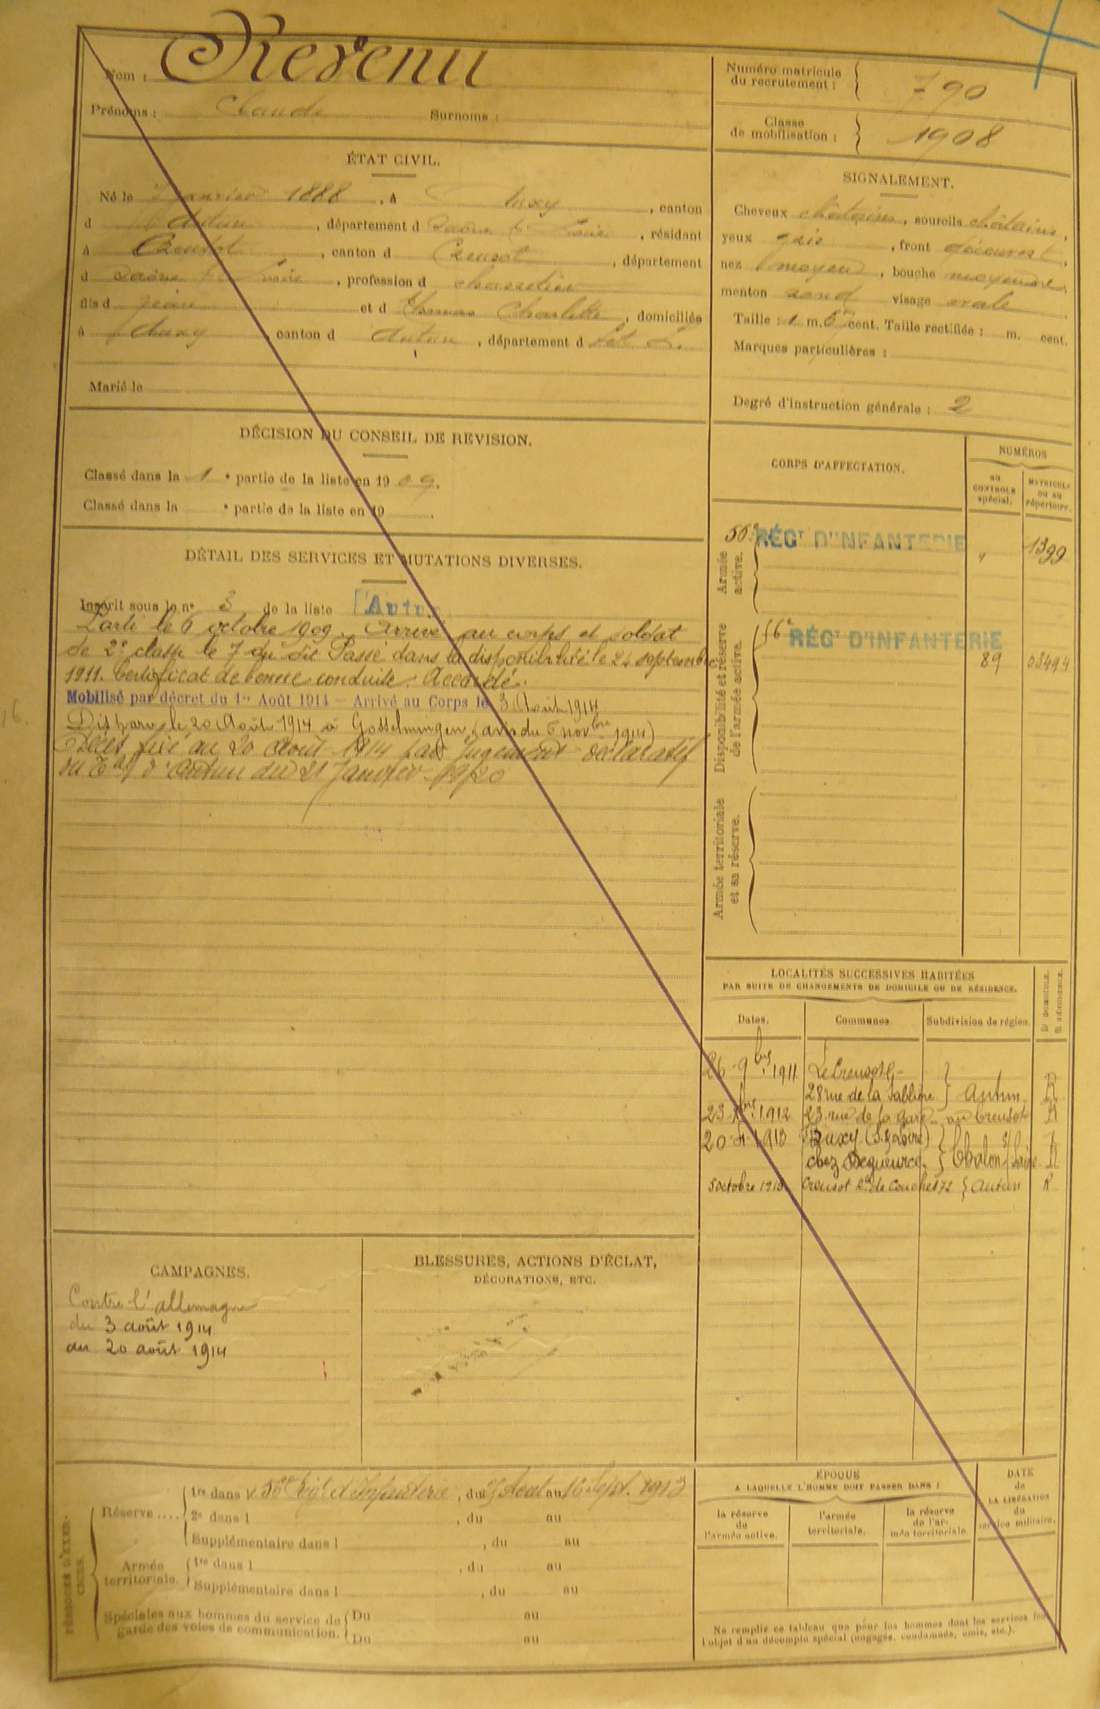 Nom : Revenu
Prénoms : Claude Surnoms :
Numéro matricule
du recrutement : 790
Classe
de mobilisation : 1908
ÉTAT CIVIL.
Né le janvier 1888, à Auxy, canton
d Autun, département d Saône & Loire, résidant
à Creusot, canton d Creusot, département
d Saône & Loire, profession d
fils d Jean et d Charlotte, domiciliés
à Auxy, canton d Autun, département d S. et L.
Marié le
SIGNALEMENT.
Cheveux châtains, sourcils châtains,
yeux gris, front découvert,
nez moyen, bouche moyenne,
menton rond visage ovale
Taille : 1 m. cent. Taille rectifiée : m. cent.
Marques particulières :
Degré d'instruction générale : 2
DÉCISION DU CONSEIL DE REVISION.
Classé dans la 1e partie de la liste en 1909.
Classé dans la e partie de la liste en 19
DÉTAIL DES SERVICES ET MUTATIONS DIVERSES.
Inscrit sous le n° 3 de la liste Autun
Parti le 6 octobre 1909. Arrivé au corps et soldat
de 2e classe le 7 du dit. Passé dans la disponibilité le 24 septembre
1911. Certificat de bonne conduite : Accordé.
Mobilisé par décret du 1er Août 1914 — Arrivé au Corps le 3 Août 1914
Disparu le 20 Août 1914 à Gosselmingen (avis du 6 novbre 1914)
Décès fixé au 20 Août 1914 par jugement déclaratif
du Tal d'Autun du 21 Janvier 1920
CORPS D'AFFECTATION.
NUMÉROS
AU CONTROLE spécial.
MATRICULE OU AU répertoire.
Armée active.
56e RÉGt D'INFANTERIE " 1399
Disponibilité et réserve de l'armée active.
56e RÉGt D'INFANTERIE 89 03494
Armée territoriale et sa réserve.
LOCALITÉS SUCCESSIVES HABITÉES
PAR SUITE DE CHANGEMENTS DE DOMICILE OU DE RÉSIDENCE.
Dates. Communes. Subdivision de région. D. domicile. R. résidence.
26 9bre 1911 Le Creusot
28 rue de la Sablière Autun R
1912 23 rue de la gare au Creusot R
20 1913 Buxy (S. & Loire)
chez Chalon s/ Saône R
5 octobre 1913 Creusot Rte de Couches 72 Autun R
CAMPAGNES.
Contre l'Allemagne
du 3 août 1914
au 20 août 1914
BLESSURES, ACTIONS D'ÉCLAT,
DÉCORATIONS, ETC.
PÉRIODES D'EXERCICES.
Réserve .... 1re dans l 56e Régt d'Infanterie, du Août au 16 Sept. 1913
2e dans l , du au
Supplémentaire dans l , du au
Armée territoriale. 1re dans l , du au
Supplémentaire dans l , du au
Spéciales aux hommes du service de Du au
garde des voies de communication. Du au
ÉPOQUE
A LAQUELLE L'HOMME DOIT PASSER DANS :
la réserve de l'armée active.
l'armée territoriale.
la réserve de l'armée territoriale.
DATE de LA LIBÉRATION du service militaire.
Ne remplir ce tableau que pour les hommes dont les services font
l'objet d'un décompte spécial (engagés, condamnés, omis, etc.).